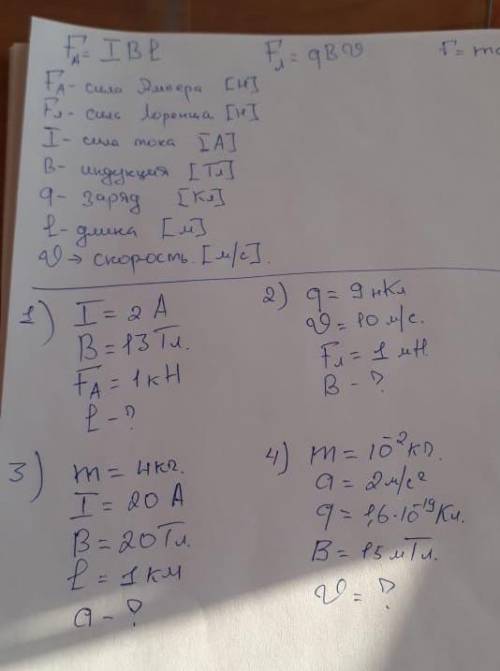 F_A = I B ℓ
F_Л = qBϑ
F = m
F_A - сила Ампера [Н]
F_Л - сила Лоренца [Н]
I - сила тока [А]
B - индукция [Тл]
q - заряд [Кл]
ℓ - длина [м]
ϑ → скорость [м/с].
1) I = 2 А
B = 13 Тл.
F_A = 1 кН
ℓ - ?
2) q = 9 нКл
ϑ = 10 м/с.
F_Л = 1 мН
B - ?
3) m = 4 кг.
I = 20 А
B = 20 Тл.
ℓ = 1 км
a - ?
4) m = 10⁻² кг.
a = 2 м/с²
q = 1,6·10⁻¹⁹ Кл.
B = 15 мТл.
ϑ = ?